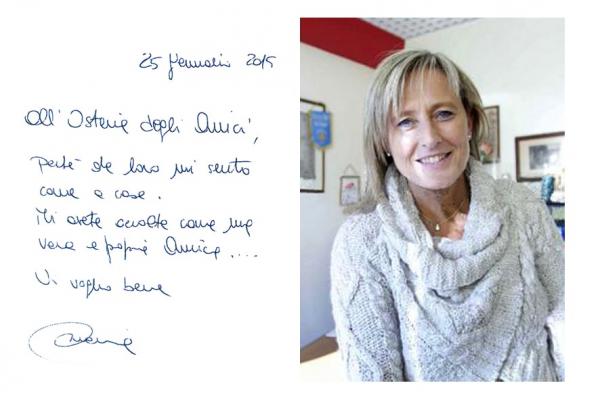 25 Gennaio 2015
All'Osteria degli Amici,
perché da loro mi sento
come a casa.
Mi avete accolta come una
vera e propria Amica....
Vi voglio bene